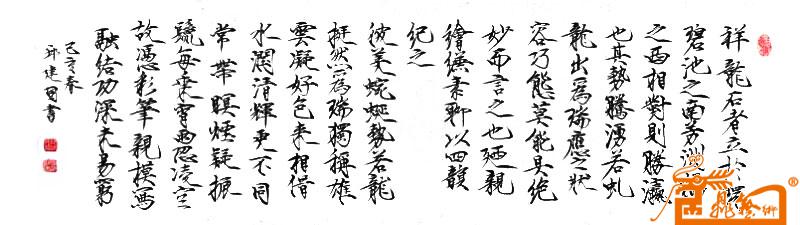 祥龍石者立於環
碧池之南芳洲橋
之西相對則勝瀛
也其勢騰湧若虬
龍出為瑞應之狀
容巧態莫能具絶
妙而言之也廼親
繪縑素聊以四韻
紀之
彼美蜿蜒勢若龍
挺然為瑞獨稱雄
雲凝好色來相借
水潤清輝更不同
常帶暝煙疑振
鬣每乘宵雨恐凌空
故憑彩筆親模寫
融結功深未易窮
己亥春
建國書